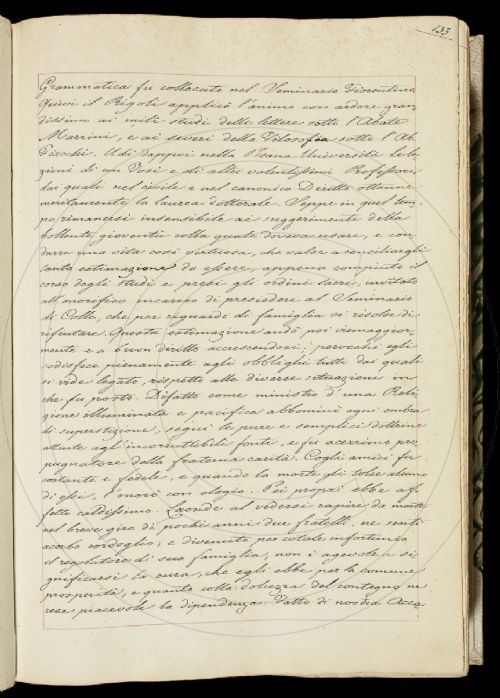 133
Grammatica fu collocato nel Seminario Fiorentino.
Quivi il Rigoli applicò l'animo con ardore gran
dissimo ai miti studi delle lettere sotto l'Abate
Marrini, e ai severi della Filosofia sotto l'Ab.
Fiacchi. Udì dappoi nella Pisana Università le le
zioni di un Tosi e di altri valentissimi Professori
dai quali nel civile e nel canonico Diritto ottenne
meritamente la laurea dottorale. Seppe in quel tem
po rimanersi insensibile ai suggerimenti della
bollente gioventù colla quale doveva usare, e con
durre una vita così virtuosa, che valse a conciliargli
tanta estimazione da essere, appena compiuto il
corso degli studi e presi gli ordini sacri, invitato
all'onorifico incarico di presiedere al Seminario
di Colle, che per riguardo di famiglia si risolse di
rifiutare. Questa estimazione andò poi viemaggior
mente e a buon diritto accrescendosi; perocchè egli
sodisfece pienamente agli obblighi tutti dai quali
si vide legato, rispetto alle diverse situazioni in
che fu posto. Difatto come ministro d'una Reli
gione illuminata e pacifica abbominò ogni ombra
di superstizione, seguì le pure e semplici dottrine
attinte agl'incorruttibili fonti, e fu acerrimo pro
pugnatore della fraterna carità. Cogli amici fu
costante e fedele, e quando la morte gli tolse alcuno
di essi, l'onorò con elogio. Pei propri ebbe af
fetto caldissimo. Laonde al vedersi rapire da morte
nel breve giro di pochi anni due fratelli, ne sentì
acerbo cordoglio, e divenuto per cotale infortunio
il regolatore di sua famiglia, non è agevole si
gnificarsi la cura, che egli ebbe per la comune
prosperità, e quanto colla dolcezza del contegno ne
rese piacevole la dipendenza. Fatto di nostra Acca